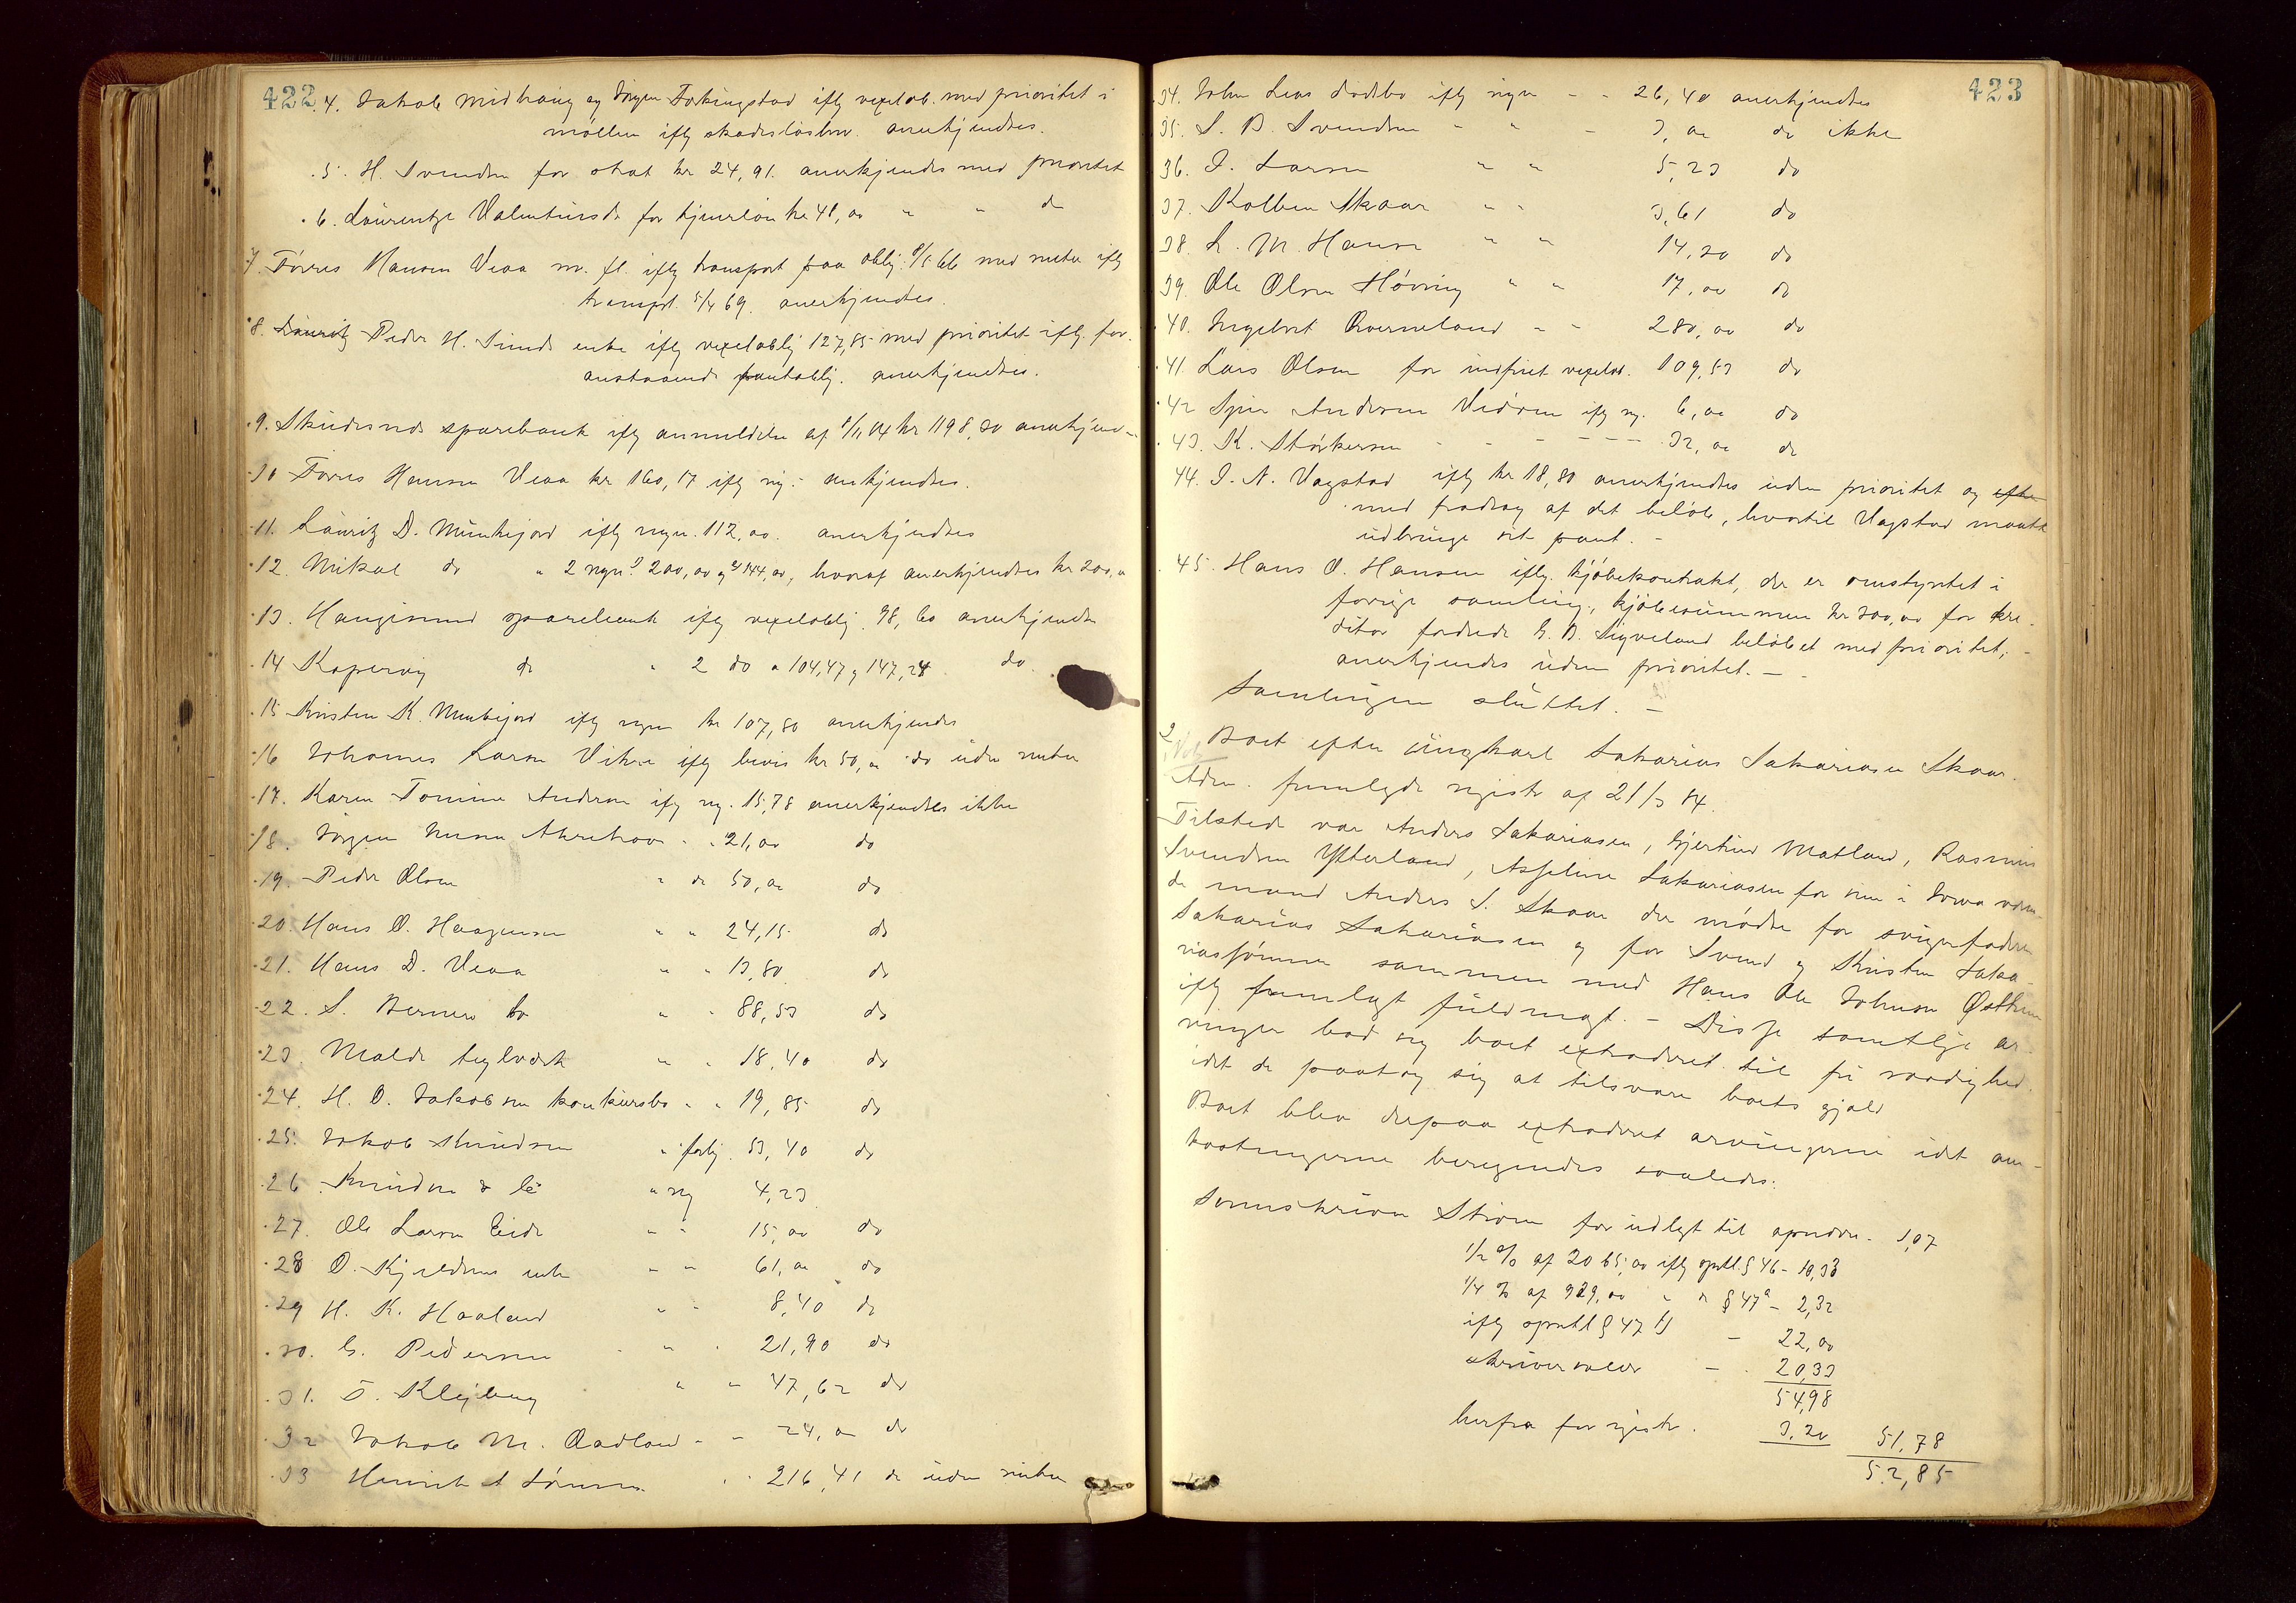 422
4. Jakob Midhaug og Jørgen Fækingstad iflg vexelob. med prioritet i
møllen iflg skadesløsbrev. anerkjendtes.
5. H. Svendsen for skat kr 24,91. anerkjendes med prioritet
6. Laurentze Valentinsdr for tjenerløn kr 48,00 " " do
7. Tørres Hansen Veaa m. fl. iflg transport paa oblig. 8/5 66 med renter iflg
transport 5/4 69. anerkjendtes.
8. Peder H. Sunds enke iflg vexeloblig 127,85 med prioritet iflg. for-
anstaaende pantoblig. anerkjendtes.
9. Skudesnes sparebank iflg anmeldelse af 8/11 84 kr 1198,20 anerkjend-
10 Tørres Hansen Veaa kr 160,17 iflg rg. - anerkjendtes.
11. Lauritz D. Munkejord iflg regn. 112,00. anerkjendtes
12. Mikal do " 2 regnr 200,00 og 144,00, hvoraf anerkjendtes kr 200,00
13. Haugesund sparebank iflg vexeloblig. 98,60 anerkjendtes
14 Kopervig do " 2 do " 104,47 og 147,24 do.
15 Kristen K. Munkejord iflg regn kr 107,80 anerkjendes
16 Johannes Larsen Vikre iflg bevis kr 50,00 do uden renter
17. Karen Tomine Andersen iflg rg. 15,78 anerkjendtes ikke
18. Jørgen Aakrehavn - - 21,00 do
19. Peder Olsen " do 50,00 do
20. Hans O. Haagensen " " 24,15 do
21. Hans D. Veaa " " 13,80 do
22. S. Berner & co " - 88,53 do
23. Malde teglværk " " 18,40 do
24. H. O. Jakobsen konkursbo - - 19,85 do
25. Jakob Knudsen " 53,40 do
26. Knudsen & Co " rg 4,23
27. Ole Larsen Eide " " 15,00 do
28 O. Kjeldsens enke " " 61,00 do
29 H. K. Haaland " " 8,40 do
30. G. Pedersen - " - 21,90 do
31. T. " " 47,62 do
32 Jakob M. Aadland - - 24,00 do
33 Henrik A Sørensen " - 216,41 do uden renter
423
34. John Leas dødsbo iflg regn - - 26,40 anerkjendtes
35. S. B. Svendsen - " - 3,00 do ikke
36. I. Larsen " " 5,23 do
37. Kolben Skaar - - 3,61 do
38. L. M. Hansen " " 14,20 do
39. Ole Olsen Høvring " " 17,00 do
40. Ingebret Kverneland - - 280,00 do
41. Lars Olsen for indfriet vexelob. 109,53 do
42 Andersen Vedøen iflg rg. 6,00 do
43. K. Størkersen - - - - - - - 32,00 do
44. I. N. Vagstad iflg kr 18,80 anerkjendtes uden prioritet og efter
med fradrag af det beløb, hvortil Vagstad maatte
udbringe sit pant. -
45. Hans O. Hansen iflg. kjøbekontrakt, der er omstyrtet i
forrige samling, kjøbesummen kr 200,00 for kre-
ditor fordrede G. B. Sigveland beløbet med prioritet; -
anerkjendes uden prioritet. - -
Samlingen sluttet. -
2 Boet efter ungkarl Sakarias Sakariasen Skaar.
Adm. fremlagde registr. af 21/3 84.
Tilstede var Anders Sakariasen, Gjertrud Matland, Rasmus
Svendsen Ytterland, Asseline Sakariasen for sin i Iowa væren-
de mand Anders S. Skaar der mødte for svigerfaderen
Sakarias Sakariasen og for Svend og Kristen Saka-
riassønner sammen med Hans Ole Johnsen Østhus
iflg fremlagt fuldmagt. - Disse samtlige ar-
vinger bad sig boet extraderet til fri raadighed
idet de paatog sig at tilsvare boets gjæld
Boet blev derpaa extraderet arvingerne idet om-
kostningerne beregnedes saaledes:
Sorenskriver Strøm for udlagt til - 1,07
1/2 % af 2065,00 iflg sprtl. § 46 - 10,33
1/4 % af 929,00 " " § 47a - 2,32
iflg sprtl § 47 b) - 22,00
skriversaler - 20,33
54,98
herfra for registr. 3,20 51,78
52,85